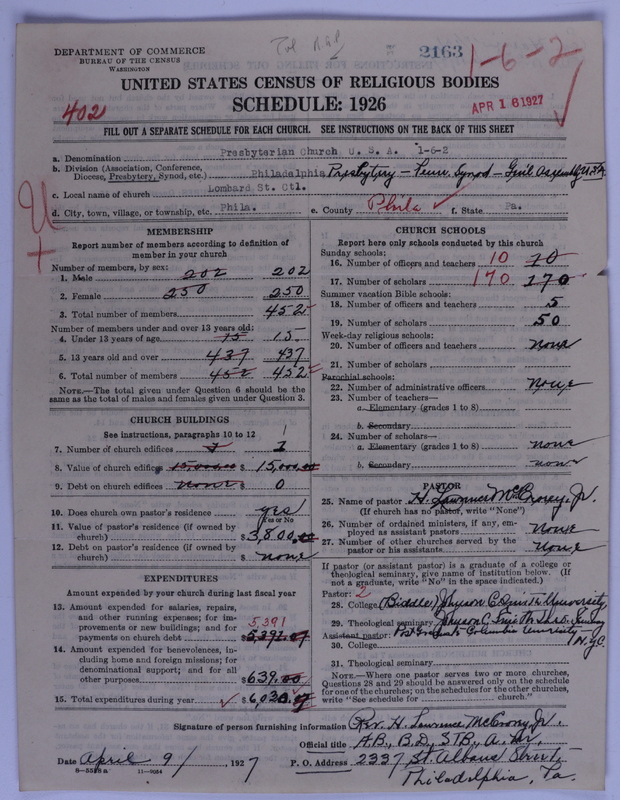 DEPARTMENT OF COMMERCE
BUREAU OF THE CENSUS
WASHINGTON
2163
1-6-2
UNITED STATES CENSUS OF RELIGIOUS BODIES
SCHEDULE: 1926
402
APR 16 1927
FILL OUT A SEPARATE SCHEDULE FOR EACH CHURCH. SEE INSTRUCTIONS ON THE BACK OF THIS SHEET
a. Denomination Presbyterian Church U. S. A. 1-6-2
b. Division (Association, Conference,
Diocese, Presbytery, Synod, etc.) Philadelphia Presbytery - Penn. Synod - Gen'l Assembly U.S.A.
c. Local name of church Lombard St. Ctl.
d. City, town, village, or township, etc. Phila. e. County Phila f. State Pa.
MEMBERSHIP
Report number of members according to definition of
member in your church
Number of members, by sex:
1. Male 202 202
2. Female 250 250
3. Total number of members 452
Number of members under and over 13 years old:
4. Under 13 years of age 15 15
5. 13 years old and over 437 437
6. Total number of members 452 452
NOTE.—The total given under Question 6 should be the
same as the total of males and females given under Question 3.
CHURCH BUILDINGS
See instructions, paragraphs 10 to 12
7. Number of church edifices 1 1
8. Value of church edifices 15,000.00 $ 15,000.00
9. Debt on church edifices none $ 0
10. Does church own pastor's residence yes!
Yes or No
11. Value of pastor's residence (if owned by
church) $ 3,800.00
12. Debt on pastor's residence (if owned by
church) $ none
EXPENDITURES
Amount expended by your church during last fiscal year
13. Amount expended for salaries, repairs,
and other running expenses; for im-
provements or new buildings; and for
payments on church debt 5,391
$ 5,391.07
14. Amount expended for benevolences, in-
cluding home and foreign missions; for
denominational support; and for all
other purposes $ 639.00
15. Total expenditures during year $ 6,030.07
CHURCH SCHOOLS
Report here only schools conducted by this church
Sunday schools:
16. Number of officers and teachers 10 10
17. Number of scholars 170 170
Summer vacation Bible schools:
18. Number of officers and teachers 5
19. Number of scholars 50
Week-day religious schools:
20. Number of officers and teachers none
21. Number of scholars
Parochial schools:
22. Number of administrative officers None
23. Number of teachers—
a. Elementary (grades 1 to 8)
b. Secondary
24. Number of scholars—
a. Elementary (grades 1 to 8) none
b. Secondary none
PASTOR
25. Name of pastor H. Lawrence McCrorey, Jr.
(If church has no pastor, write "None")
26. Number of ordained ministers, if any, em-
ployed as assistant pastors None
27. Number of other churches served by the
pastor or his assistants None
If pastor (or assistant pastor) is a graduate of a college or
theological seminary, give name of institution below. (If
not a graduate, write "No" in the space indicated.)
Pastor: 2
28. College (Biddle) Johnson C. Smith University
29. Theological seminary Johnson C. Smith
Assistant pastor: Post Graduate Columbia University
30. College N.Y.C.
31. Theological seminary
NOTE.—Where one pastor serves two or more churches,
Questions 28 and 29 should be answered only on the schedule
for one of the churches; on the schedules for the other churches,
write "See schedule for church."
Signature of person furnishing information Rev. H. Lawrence McCrorey, Jr.
Official title A.B., B.D., S.T.B., A.M.
Date April 9/ 1927 P. O. Address 2337 St. Albans Street
8—5528 a 11—9034
Philadelphia, Pa.